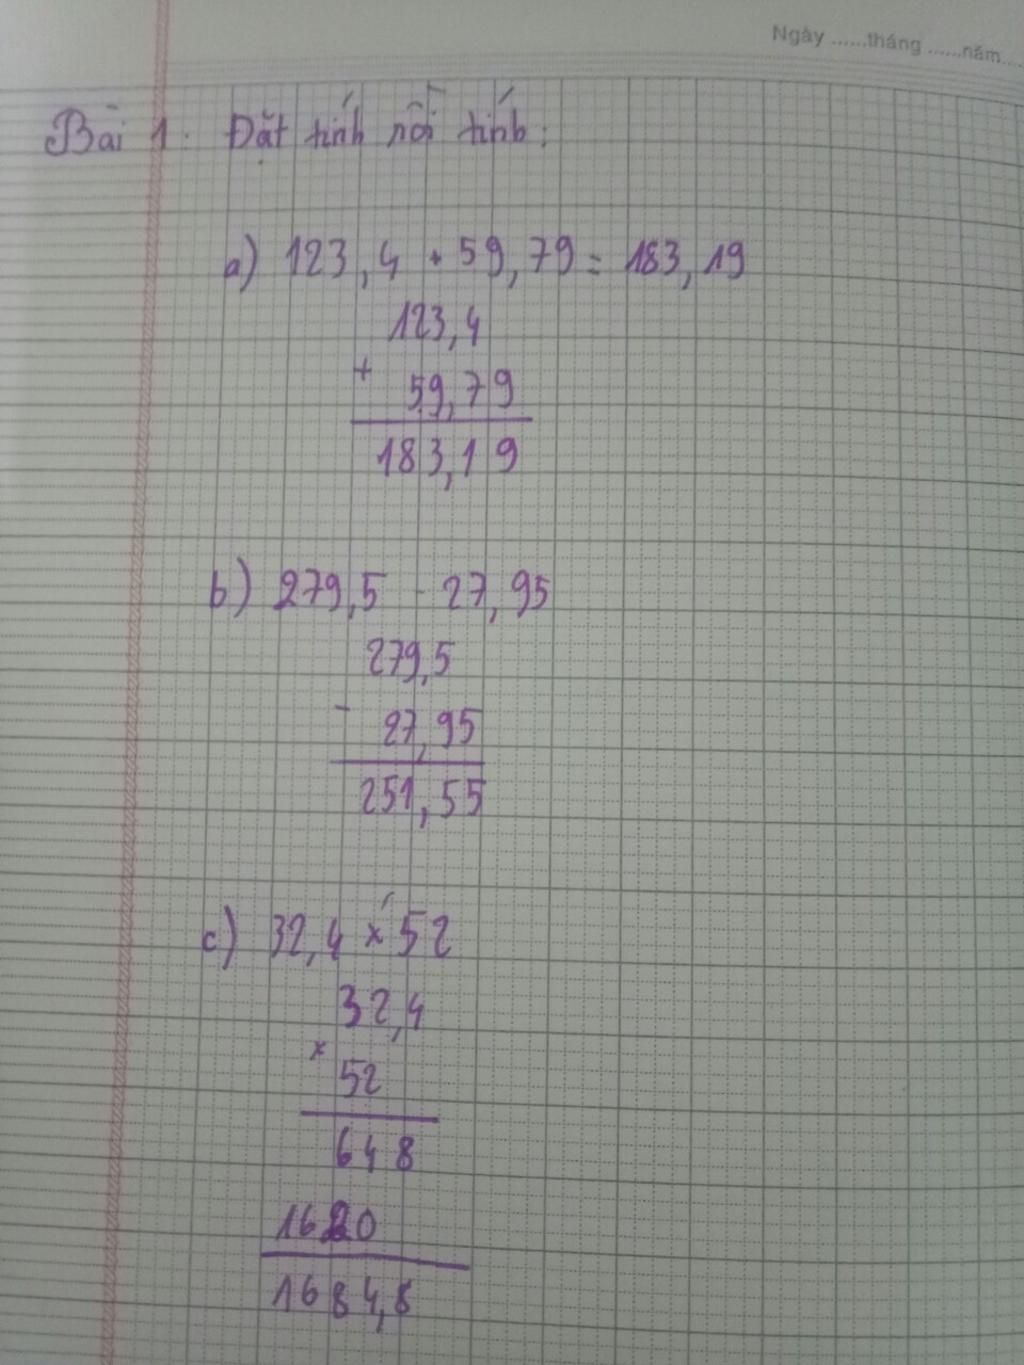 Ngày ......tháng ......năm....
Bài 1: Đặt tính rồi tính:
a) 123,4 + 59,79 = 183,19
123,4
+
59,79
183,19
b) 279,5 - 27,95
279,5
-
27,95
251,55
c) 32,4 x 52
32,4
x
52
648
1620
1684,8